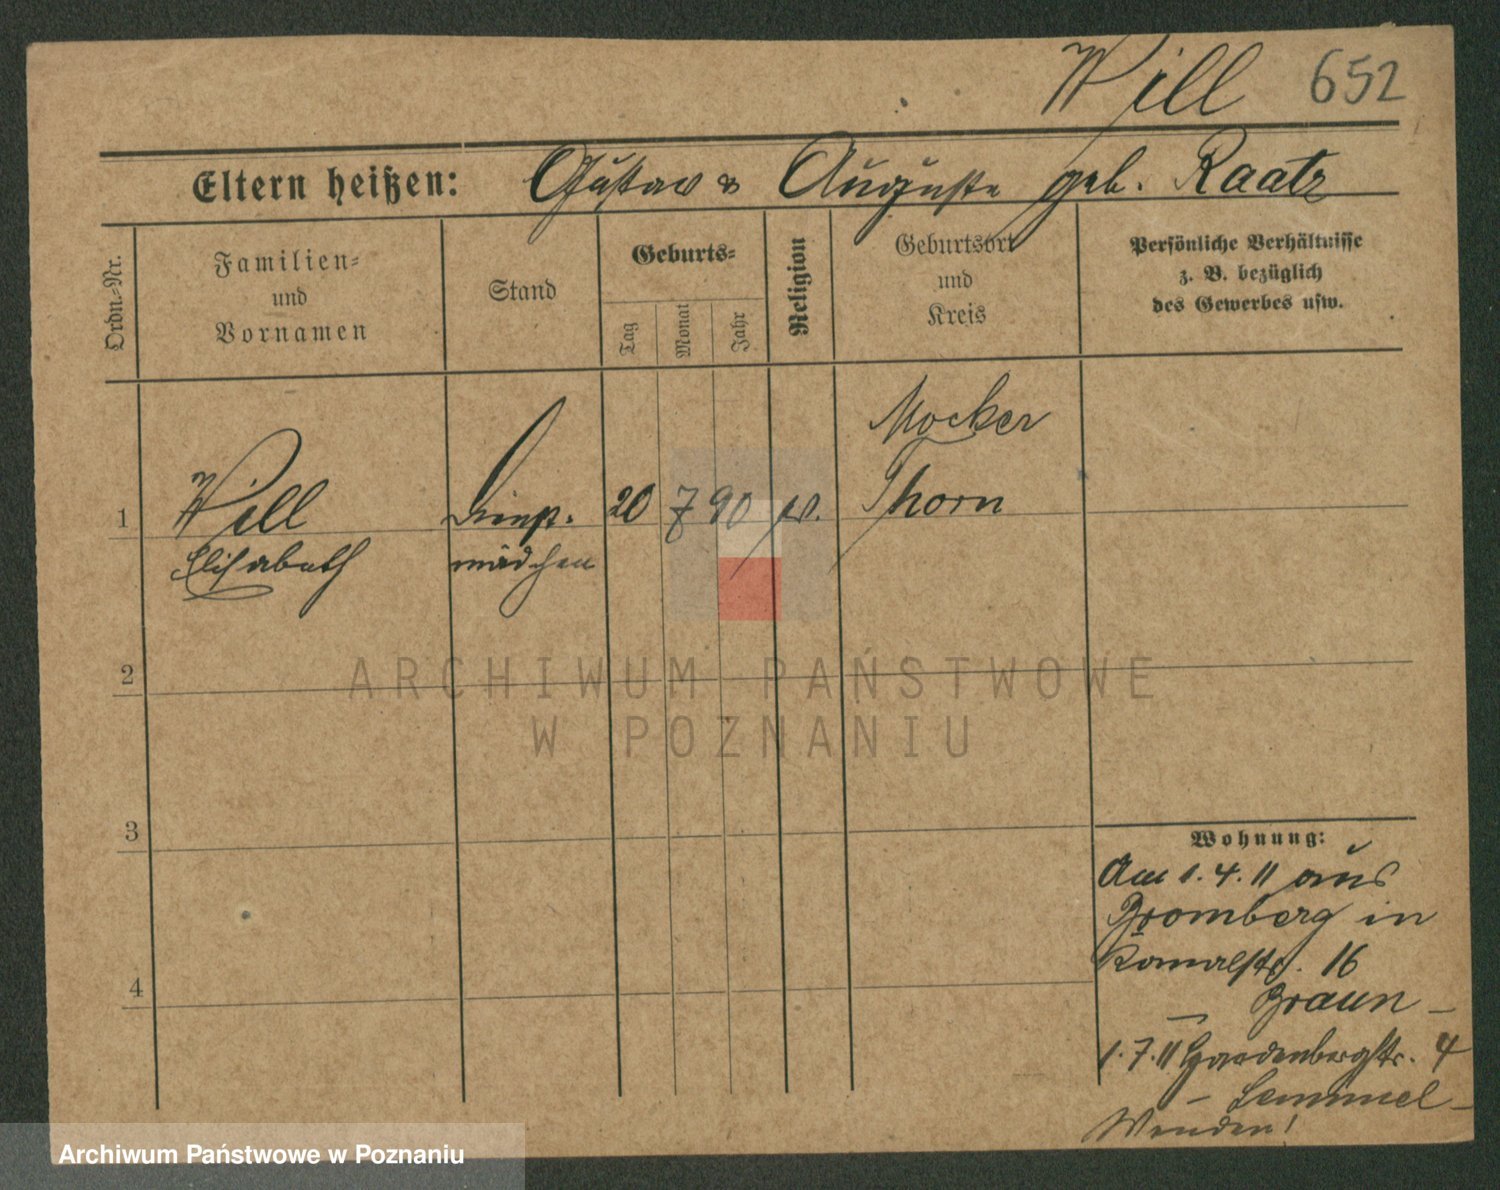 Will 652
Eltern heißen: Gustav & Auguste geb. Raatz
Ordn.-Nr.
Familien-
und
Vornamen
Stand
Geburts-
Tag
Monat
Jahr
Religion
Geburtsort
und
Kreis
Persönliche Verhältnisse
z. B. bezüglich
des Gewerbes usw.
1
Will
Elisabeth
Dienst-
mädchen
20 7 90 ev.
Mocker
Thorn
2
3
4
Wohnung:
Am 1.4.11 aus
Bromberg in
Kanalstr. 16
– Braun –
1.7.11 Hardenbergstr. 4
– Lemmel –
Wenden!
ARCHIWUM PAŃSTWOWE
W POZNANIU
Archiwum Państwowe w Poznaniu